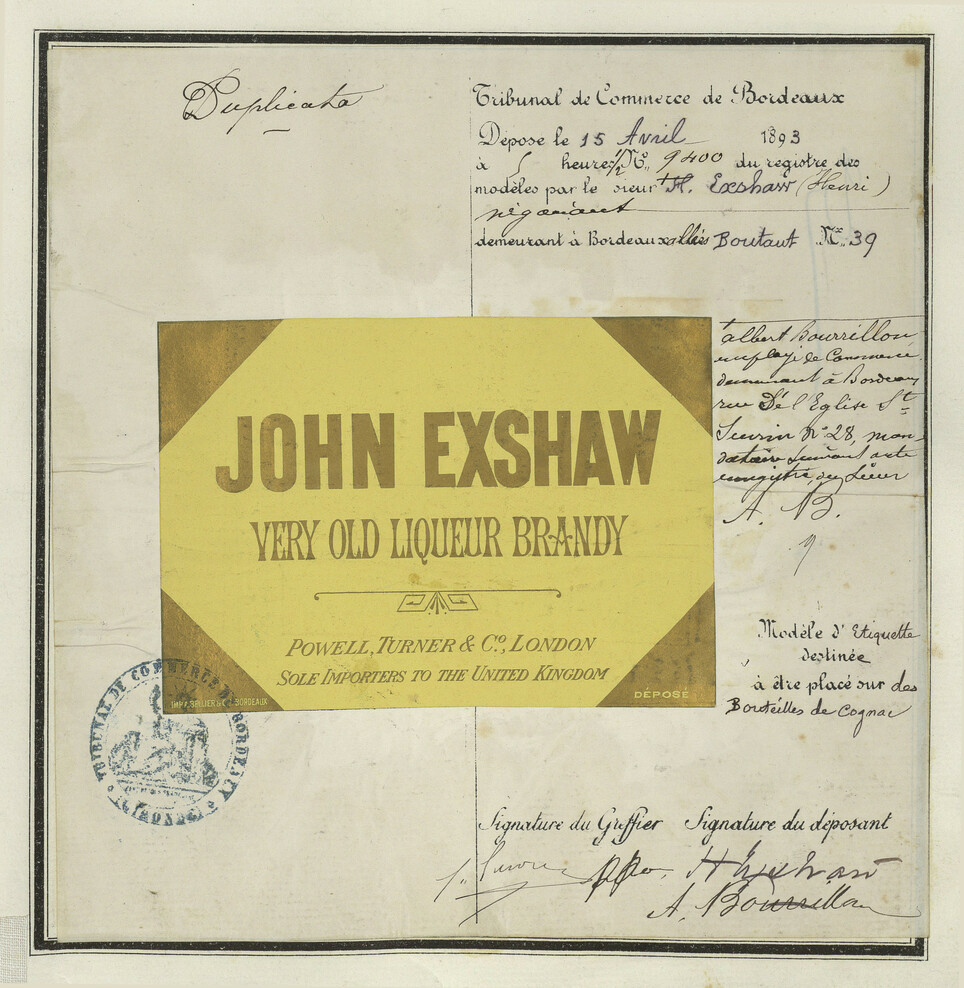 Duplicata
Tribunal de Commerce de Bordeaux
Déposé le 15 Avril 1893
à 5 heure ½ N° 9400 du registre des
modèles par le sieur H. Exshaw (Henri)
négociant
demeurant à Bordeaux allées Boutaut N° 39
albert Bourrillon
employé de Commerce
demeurant à Bordeaux
rue De l'Eglise St
Seurin N° 28, man-
dataire suivant acte
enregistré, du Sieur
A. B.
JOHN EXSHAW
VERY OLD LIQUEUR BRANDY
POWELL, TURNER & Co, LONDON
SOLE IMPORTERS TO THE UNITED KINGDOM
DÉPOSÉ
BORDEAUX
Modèle d'Etiquette
destinée
à être placé sur des
Bouteilles de Cognac
TRIBUNAL DE COMMERCE DE BORDEAUX
(GIRONDE)
Signature du Greffier Signature du déposant
ppon. H Exshaw
A. Bourrillon